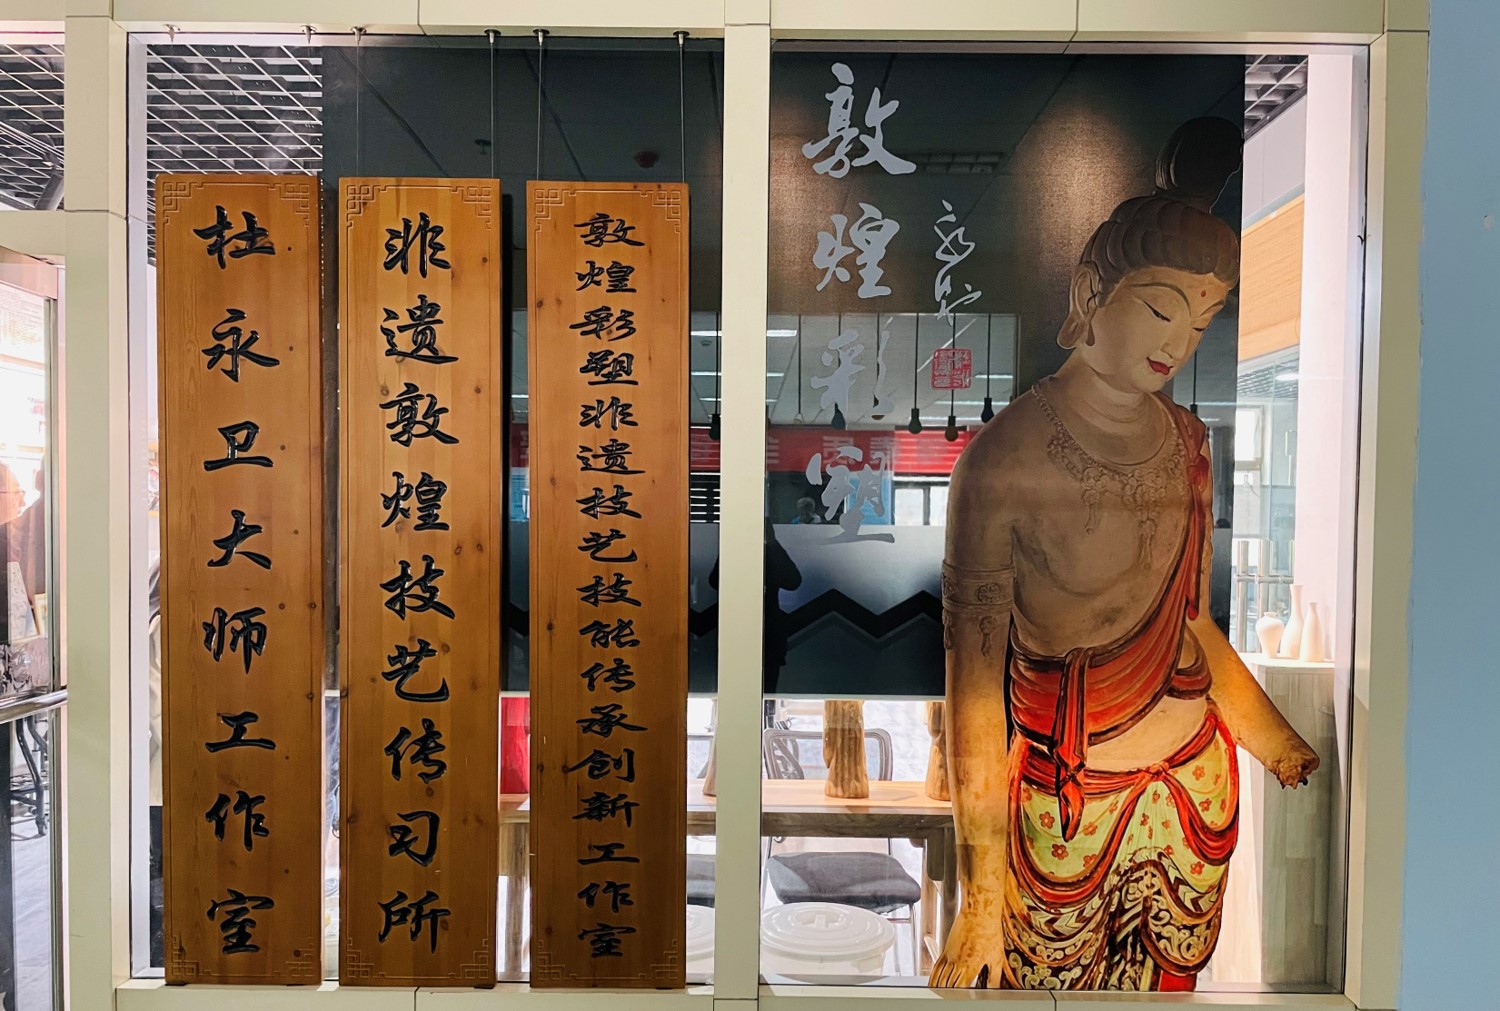 杜永卫大师工作室
非遗敦煌技艺传习所
敦煌彩塑非遗技艺技能传承创新工作室
敦煌彩塑